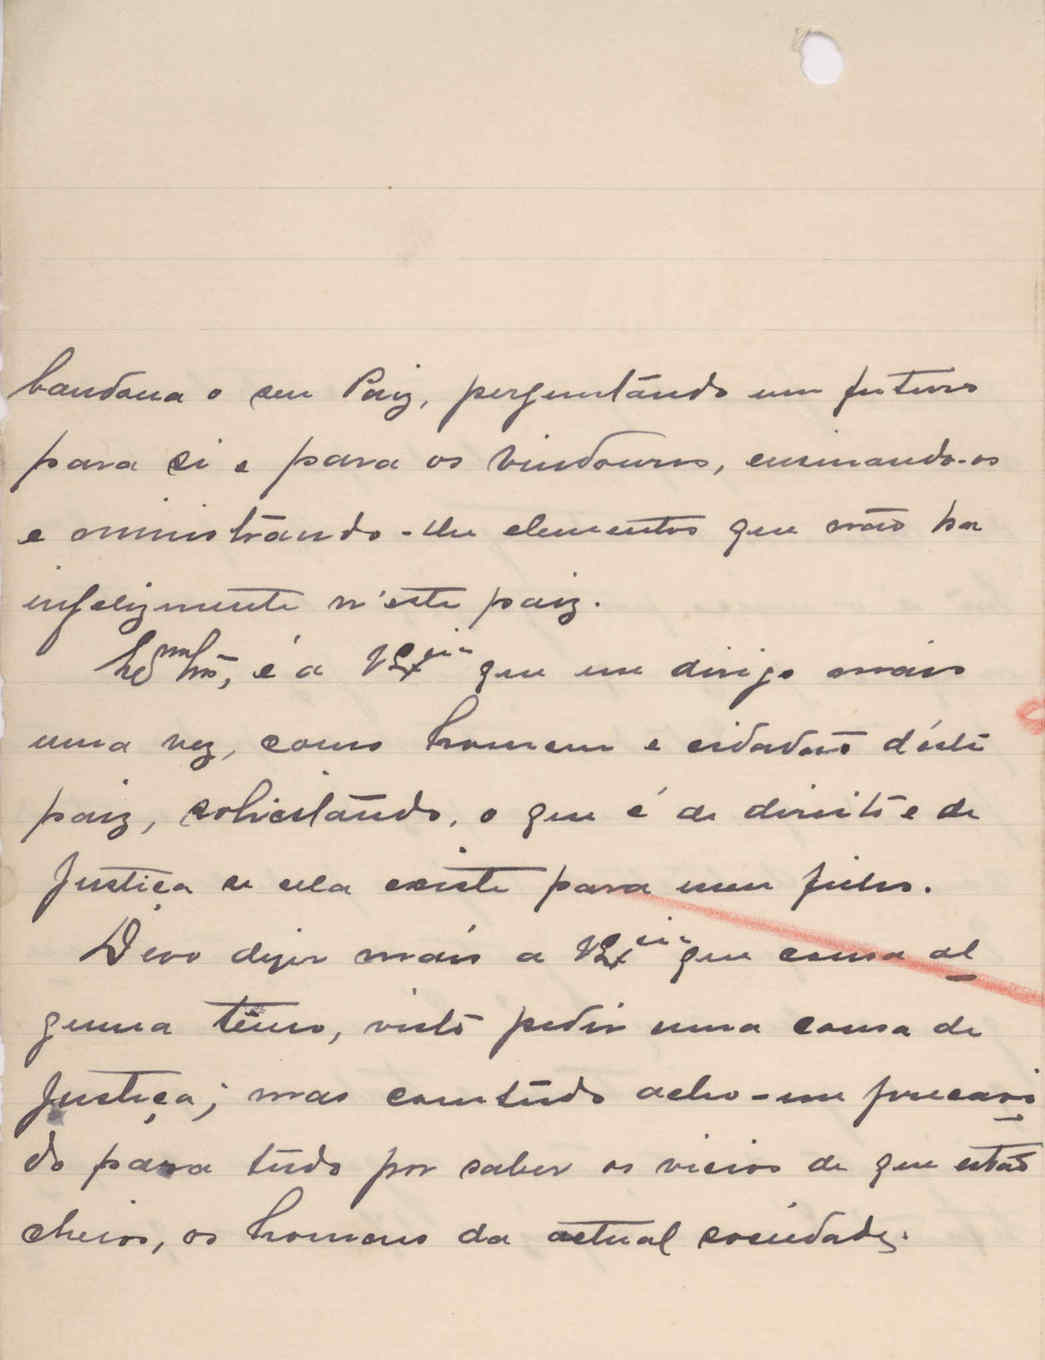 bandona o seu Paiz, perguntando um futuro
para si e para os vindouros, ensinando-os
e ministrando-lhe elementos que não ha
infelizmente n'este paiz.
é a V Ex.cia que me dirijo mais
uma vez, como homem e cidadão d'éste
paiz, solicitando, o que é de direito e de
Justiça se ella existe para meu filho.
Devo dizer mais a V Ex.cia que cousa al
guma têmo, visto pedir uma cousa de
Justiça; mas comtudo acho-me precavi
do para tudo por saber os vicios de que estão
cheios, os homens da actual sociedade.